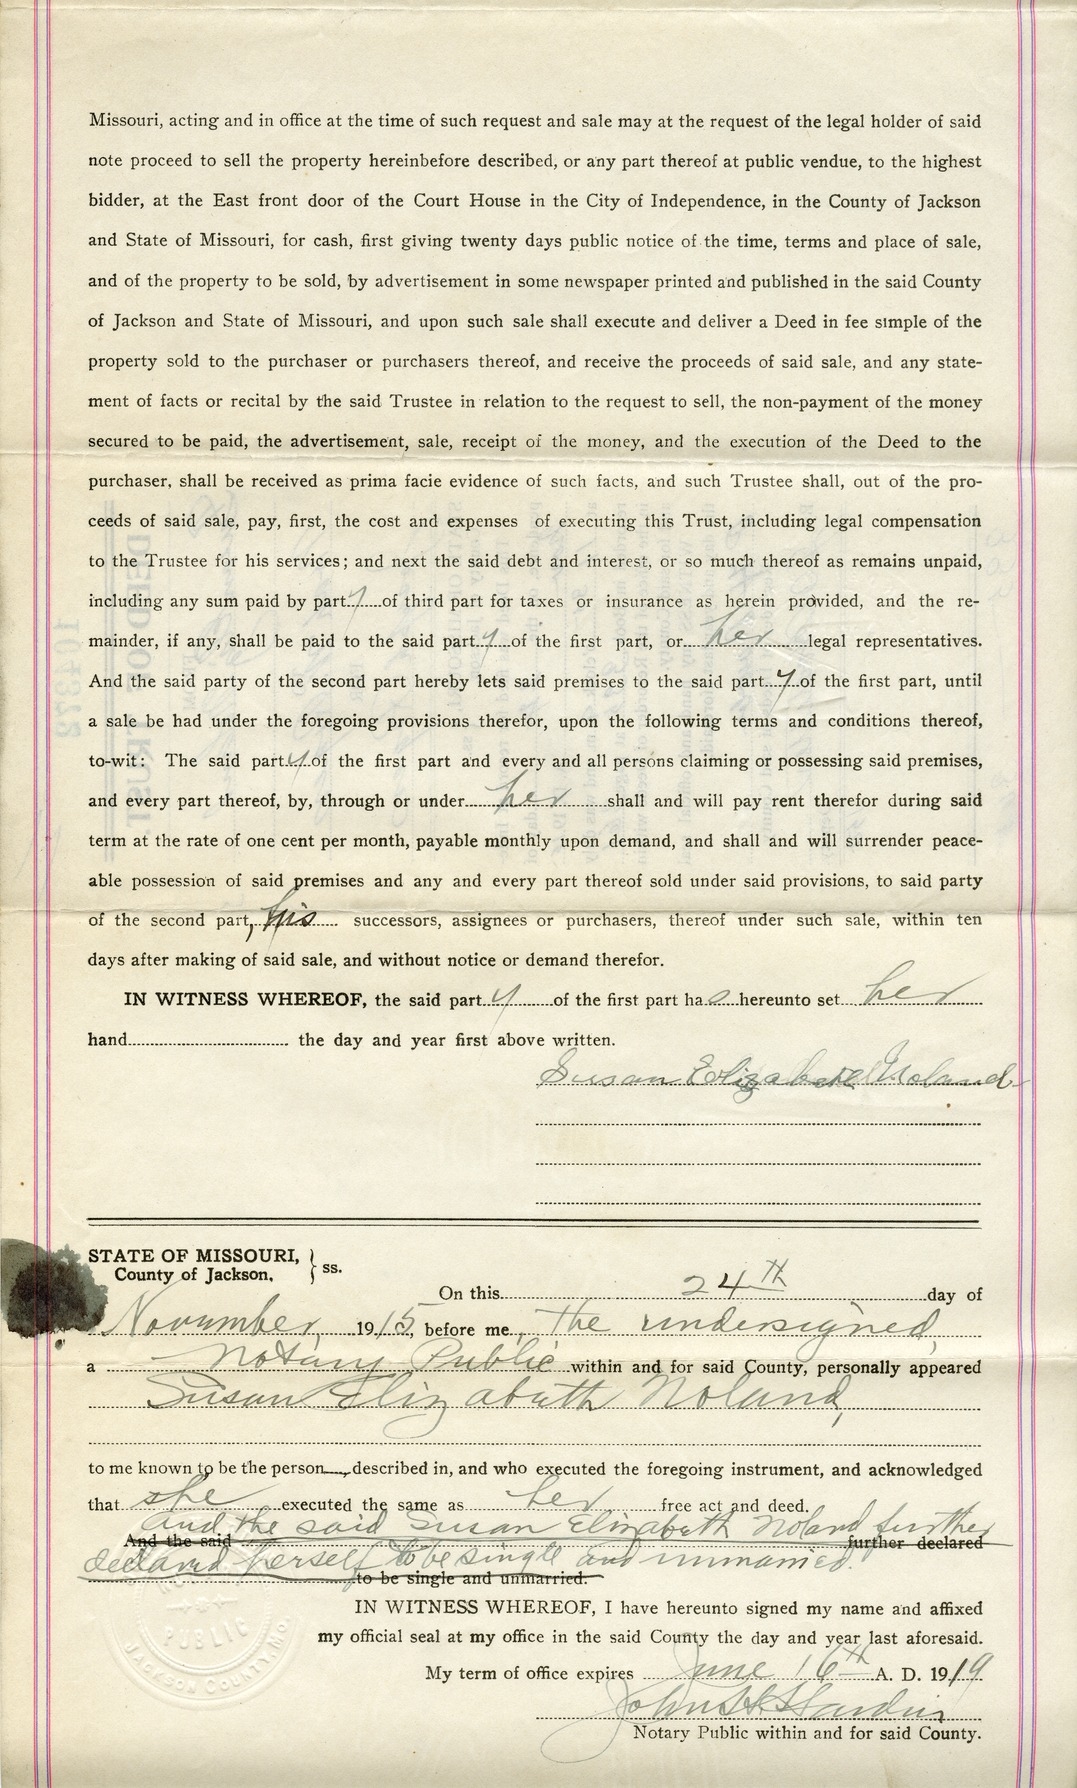 Missouri, acting and in office at the time of such request and sale may at the request of the legal holder of said
note proceed to sell the property hereinbefore described, or any part thereof at public vendue, to the highest
bidder, at the East front door of the Court House in the City of Independence, in the County of Jackson
and State of Missouri, for cash, first giving twenty days public notice of the time, terms and place of sale,
and of the property to be sold, by advertisement in some newspaper printed and published in the said County
of Jackson and State of Missouri, and upon such sale shall execute and deliver a Deed in fee simple of the
property sold to the purchaser or purchasers thereof, and receive the proceeds of said sale, and any state-
ment of facts or recital by the said Trustee in relation to the request to sell, the non-payment of the money
secured to be paid, the advertisement, sale, receipt of the money, and the execution of the Deed to the
purchaser, shall be received as prima facie evidence of such facts, and such Trustee shall, out of the pro-
ceeds of said sale, pay, first, the cost and expenses of executing this Trust, including legal compensation
to the Trustee for his services; and next the said debt and interest, or so much thereof as remains unpaid,
including any sum paid by party of third part for taxes or insurance as herein provided, and the re-
mainder, if any, shall be paid to the said party of the first part, or her legal representatives.
And the said party of the second part hereby lets said premises to the said party of the first part, until
a sale be had under the foregoing provisions therefor, upon the following terms and conditions thereof,
to-wit: The said party of the first part and every and all persons claiming or possessing said premises,
and every part thereof, by, through or under her shall and will pay rent therefor during said
term at the rate of one cent per month, payable monthly upon demand, and shall and will surrender peace-
able possession of said premises and any and every part thereof sold under said provisions, to said party
of the second part, his successors, assignees or purchasers, thereof under such sale, within ten
days after making of said sale, and without notice or demand therefor.
IN WITNESS WHEREOF, the said party of the first part has hereunto set her
hand the day and year first above written.
Susan Elizabeth Noland
STATE OF MISSOURI,
County of Jackson, ss.
On this 24th day of
November, 1915, before me, the undersigned,
a Notary Public within and for said County, personally appeared
Susan Elizabeth Noland,
to me known to be the person described in, and who executed the foregoing instrument, and acknowledged
that she executed the same as her free act and deed.
and the said Susan Elizabeth Noland further
And the said further declared
declared herself to be single and unmarried.
to be single and unmarried.
IN WITNESS WHEREOF, I have hereunto signed my name and affixed
my official seal at my office in the said County the day and year last aforesaid.
My term of office expires June 16th A. D. 1919
Notary Public within and for said County.
PUBLIC
JACKSON COUNTY, MO.
DEED OF TRUST